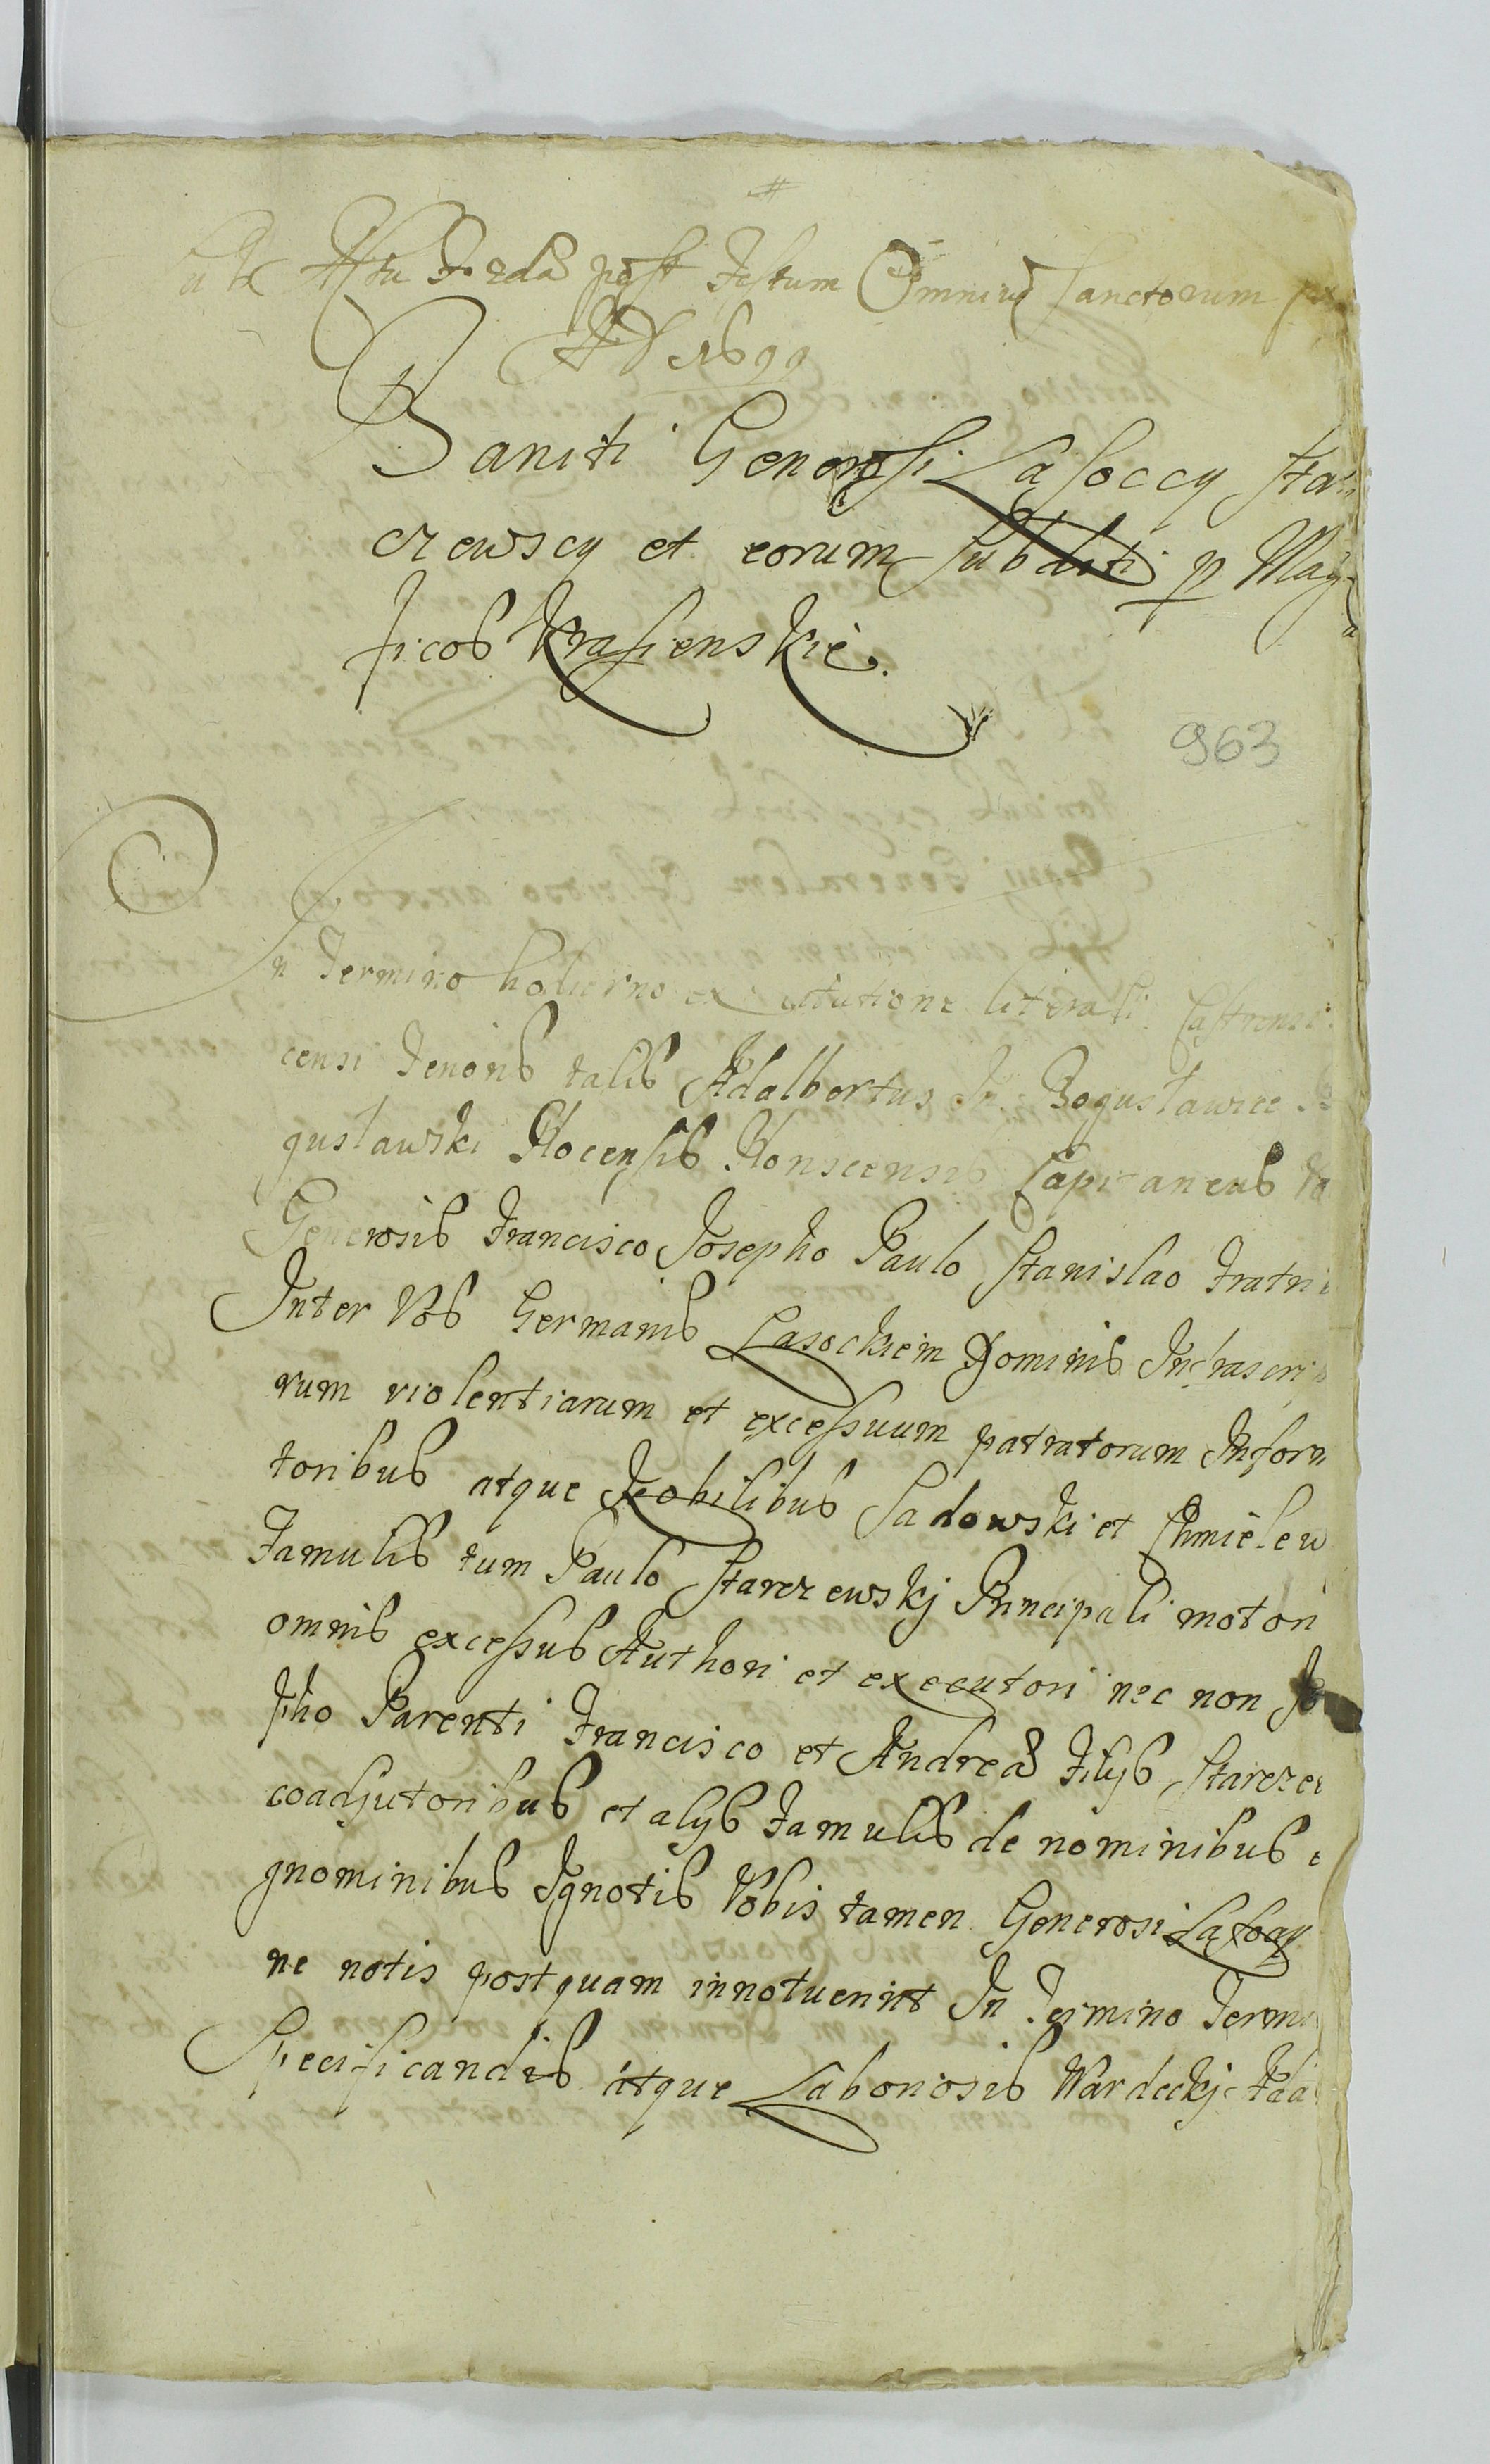 #
Actu Feria 2da post Festum Omniu Sanctorum
AD 1699
Baniti Generosi Lasoccy Star
czewscy et eorum Subditi p Mag
ficos Krasienskie.
963
In Termino hodierno ex citatione literali Castrensi
censi Tenoris talis Adalbertus In Bogusławice Bo
gusławski Plocensis Plonscensis Capitaneus Vo
Generosis Francisco Josepho Paulo Stanislao Fratri
Inter Vos Germanis Lasockiem Dominis Infrascri
rum violentiarum et excessuum patratorum Inform
toribus atque Nobilibus Sadowski et Chmielew
Famulis tum Paulo Starczewskj Principali motori
omnis excessus Authori et executori nec non Jo
pho Parenti Francisco et Andrea Filijs Starcze
coadjutoribus et alijs Famulis de nominibus e
gnominibus Ignotis Vobis tamen Generosi Lasoccy
ne notis postquam innotuerint In Termino Termi
Specificandis atque Laboriosis Wardeckj Ada